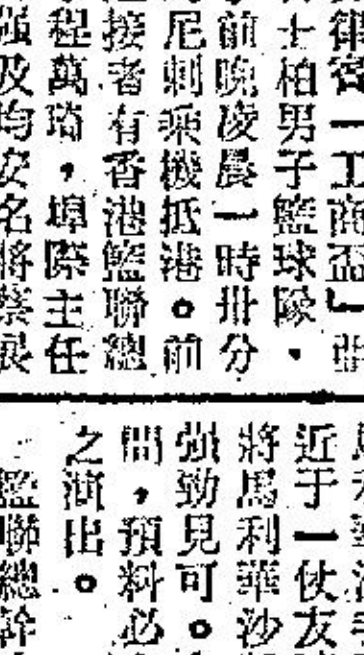 律賓「工商盃」
士柏男子籃球隊，
前晚凌晨一時卅分
尼刺乘機抵港。前
接者有香港籃聯總
程萬琦，埠際主任
强及均安名將蔡展
近于一仗友
將馬利華沙
强勁見可。
間，預料必
之演出。
籃聯總幹